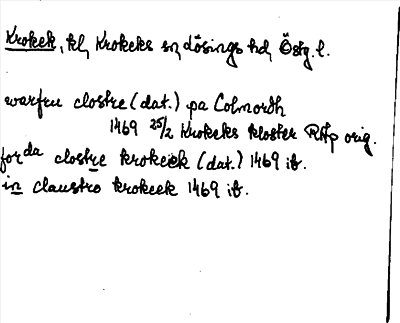 Krokek, kl, Krokeks sn, Lösings hd, Östg. l.
warfru clostre (dat.) pa Colmordh
1469 25/2 Krokeks kloster RAp orig.
forda clostre krokeek (dat.) 1469 ib.
in claustro krokeek 1469 ib.